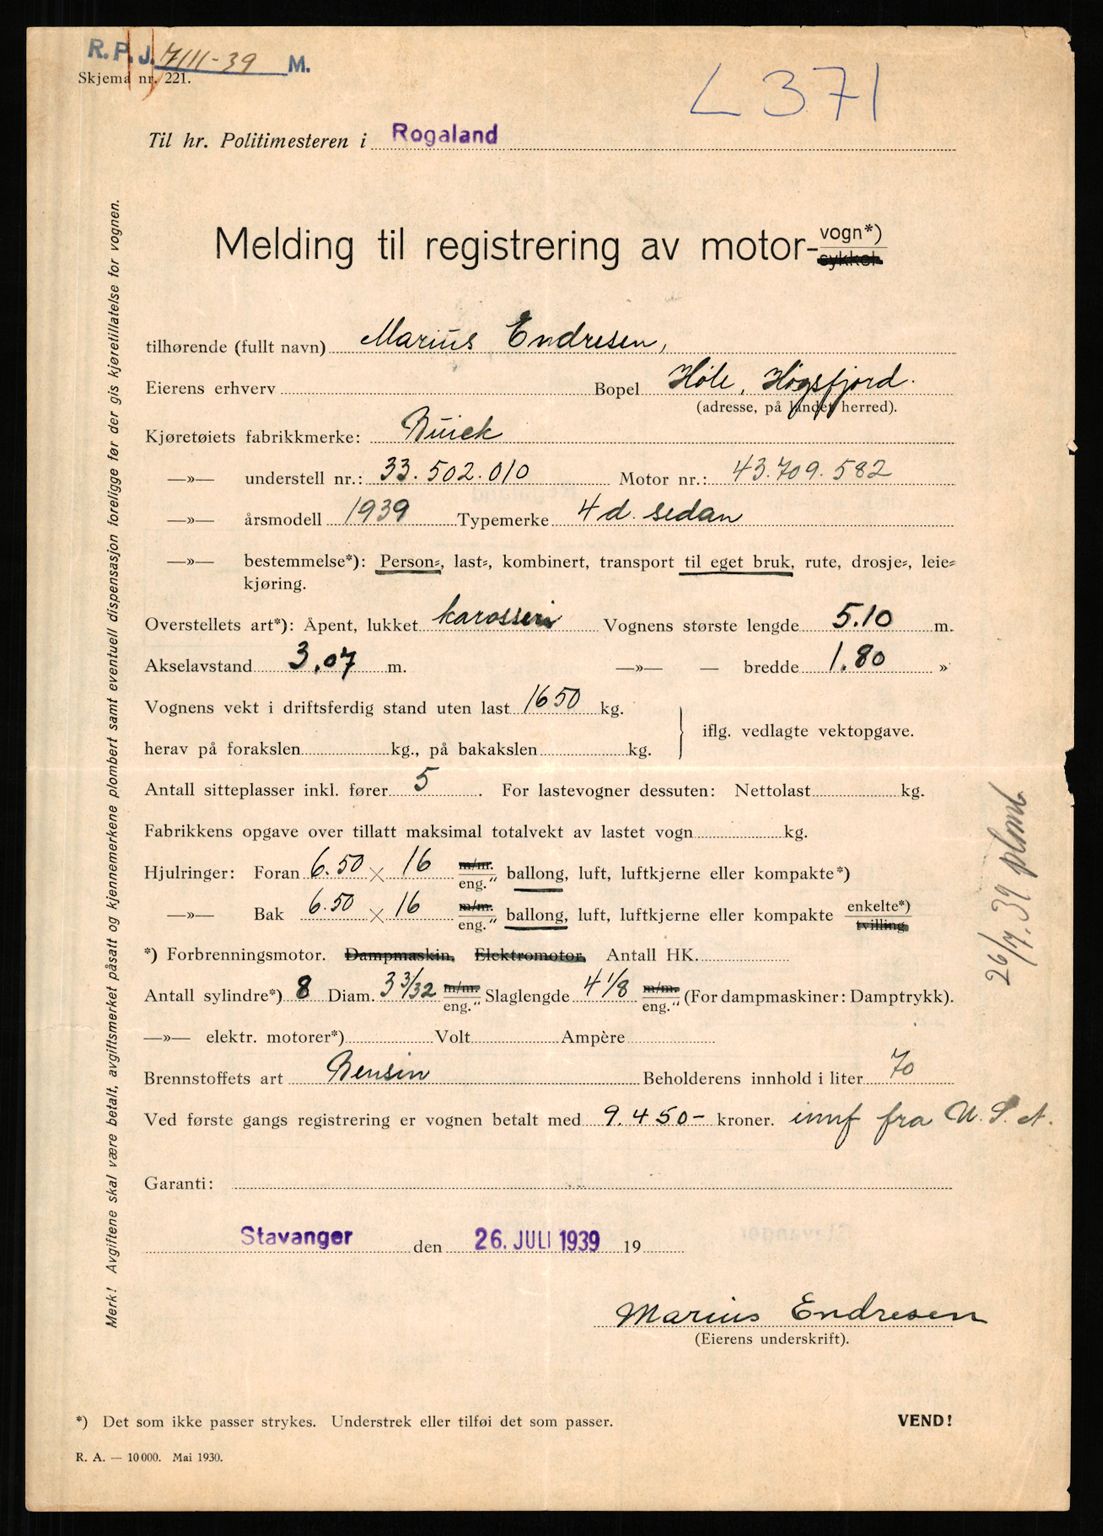 R.P.J. 7111-39 M.
Skjema nr. 221.
L 371
Til hr. Politimesteren i Rogaland
Melding til registrering av motor-vogn*)
sykkel.
tilhørende (fullt navn) Marius Endresen,
Eierens erhverv Bopel Høle, Høgsfjord.
(adresse, på landet herred).
Kjøretøiets fabrikkmerke: Buick
—»— understell nr.: 33.502.010 Motor nr.: 43.709.582
—»— årsmodell 1939 Typemerke 4 d. sedan
—»— bestemmelse*): Person-, last-, kombinert, transport til eget bruk, rute, drosje-, leie-
kjøring.
Overstellets art*): Åpent, lukket karosseri Vognens største lengde 5.10 m.
Akselavstand 3.07 m. —»— — bredde 1.80 »
Vognens vekt i driftsferdig stand uten last 1650 kg.
iflg. vedlagte vektopgave.
herav på forakslen kg., på bakakslen kg.
Antall sitteplasser inkl. fører 5. For lastevogner dessuten: Nettolast kg.
Fabrikkens opgave over tillatt maksimal totalvekt av lastet vogn kg.
Hjulringer: Foran 6.50 × 16 m/m. eng." ballong, luft, luftkjerne eller kompakte*)
—»— Bak 6.50 × 16 m/m. eng." ballong, luft, luftkjerne eller kompakte enkelte*) tvilling.
*) Forbrenningsmotor. Dampmaskin. Elektromotor. Antall HK.
Antall sylindre*) 8 Diam. 3 3/32 m/m. eng." Slaglengde 4 1/8 m/m. eng." (For dampmaskiner: Damptrykk).
—»— elektr. motorer*) Volt Ampère
Brennstoffets art Bensin Beholderens innhold i liter 70
Ved første gangs registrering er vognen betalt med 9.450- kroner. innf fra U.S.A.
Garanti:
Stavanger den 26. JULI 1939 19
Marius Endresen
(Eierens underskrift).
*) Det som ikke passer strykes. Understrek eller tilføi det som passer.
VEND!
R. A. — 10 000. Mai 1930.
Merk! Avgiftene skal være betalt, avgiftsmerket påsatt og kjennemerkene plombert samt eventuell dispensasjon foreligge før der gis kjøretillatelse for vognen.
26/7.39 plomb